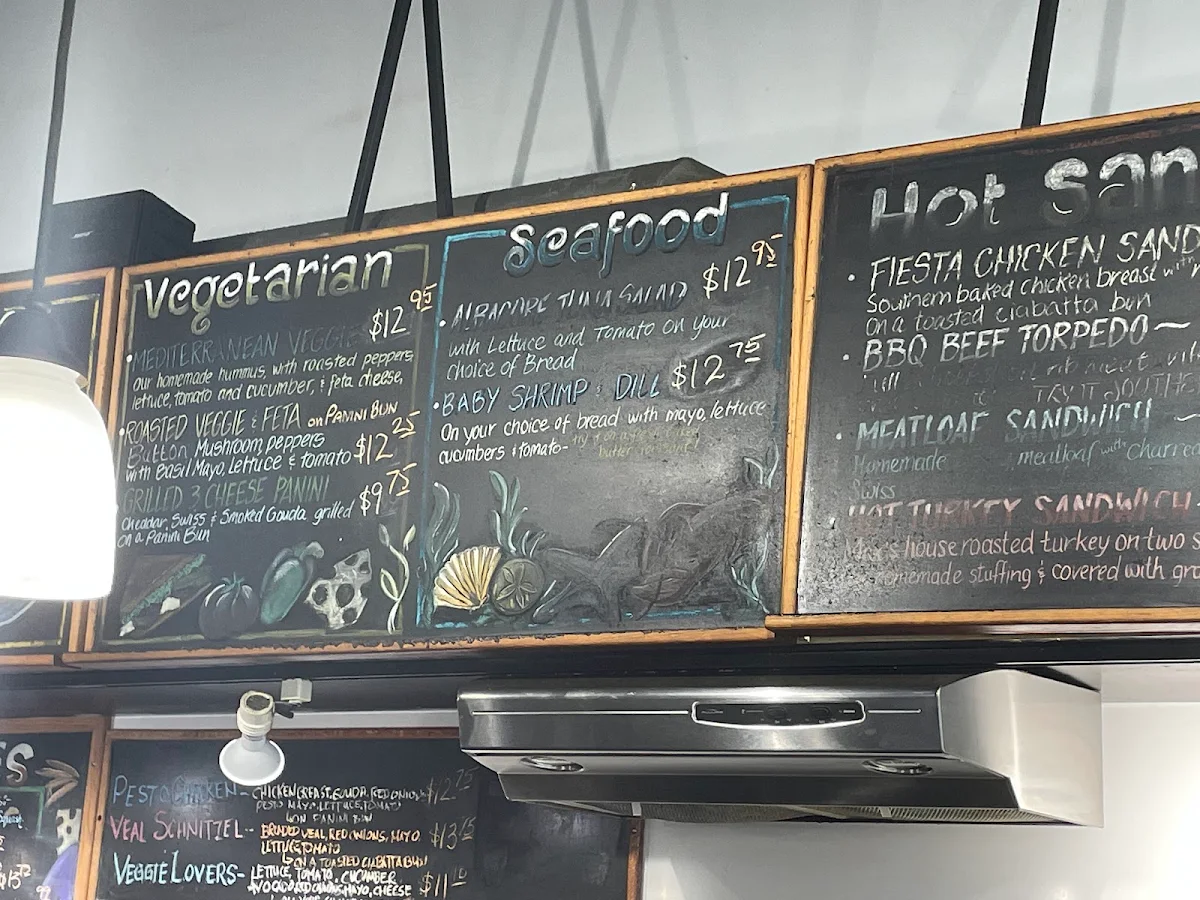 Vegetarian
MEDITERRANEAN VEGGIE $12 95
our homemade hummus, with roasted peppers,
lettuce, tomato and cucumber, & feta cheese,
ROASTED VEGGIE & FETA on PANINI BUN
Button Mushroom, peppers
with basil Mayo, Lettuce & tomato $12 25
GRILLED 3 CHEESE PANINI
Cheddar, Swiss & Smoked Gouda grilled $9 75
on a Panini Bun
Seafood
ALBACORE TUNA SALAD $12 95
with Lettuce and Tomato on your
choice of Bread
BABY SHRIMP & DILL $12 75
On your choice of bread with mayo, lettuce
cucumbers & tomato- try it on a
butter croissant
Hot San
FIESTA CHICKEN SAND
Southern baked chicken breast with
on a toasted ciabatta bun
BBQ BEEF TORPEDO ~
MEATLOAF SANDWICH ~
Homemade meatloaf with Charred
Swiss
HOT TURKEY SANDWICH
house roasted turkey on two s
omemade stuffing & covered with gra
PESTO CHICKEN- CHICKEN BREAST, GOUDA, RED ONIONS $12 75
PESTO MAYO, LETTUCE, TOMATO
ON PANINI BUN
VEAL SCHNITZEL- BREADED VEAL, RED ONIONS, MAYO, $13
LETTUCE, TOMATO
ON A TOASTED CIABATTA BUN
VEGGIE LOVERS- LETTUCE, TOMATO, CUCUMBER $11
MAYO, CHEESE